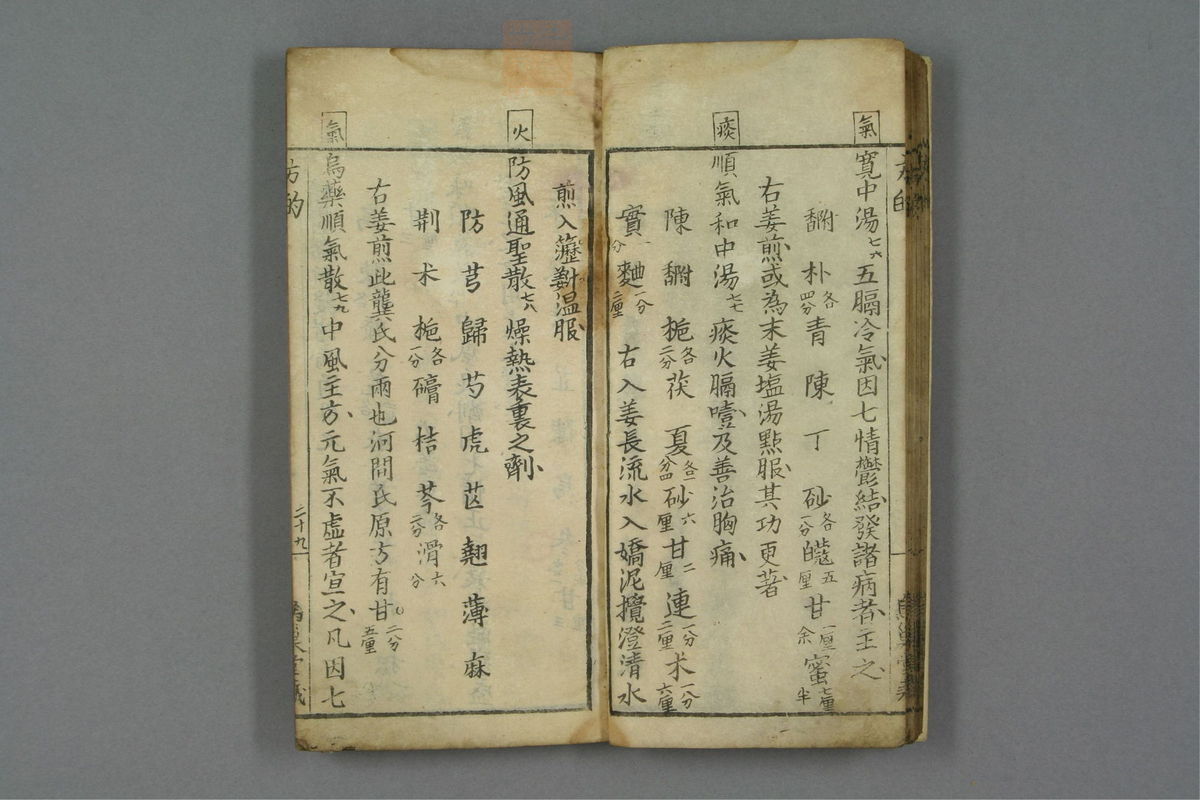 氣
寬中湯七六五膈冷氣因七情鬱結發諸病者主之
朴各四分青陳丁砂各一分蔻五厘甘一厘余蜜七厘半
右姜煎或為末姜塩湯點服其功更著
痰
順氣和中湯七七痰火膈噎及善治胸痛
陳梔各二分茯夏各一分四砂六厘甘二厘連一分二厘朮一分六厘
實一分麯一分二厘右入姜長流水入嬌泥攪澄清水
煎入薑溫服
火
防風通聖散七八燥熱表裏之劑
防芎歸芍虎芒翹薄麻
荆朮梔各一分礵桔芩各二分滑六分
右姜煎此龔氏分兩也河間氏原方有甘二分五厘
氣
烏藥順氣散七九中風主方元氣不虛者宣之凡因七
方的
二十九